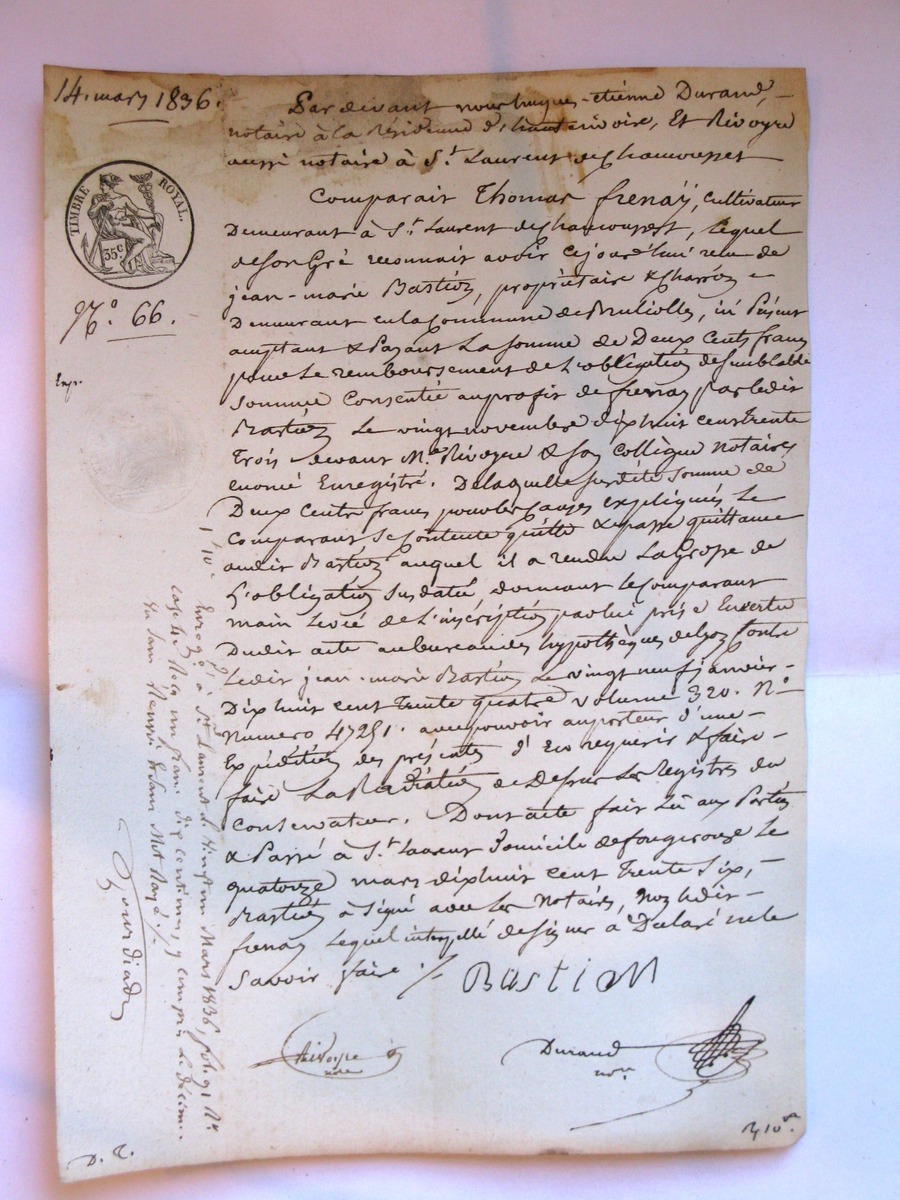 14. mars 1836.
Par devant nous hugues-étienne Durand,
notaire à la Résidence d', Et Rivoyre
aussi notaire à St. Laurent de Chamousset
TIMBRE ROYAL.
35c.
No. 66.
Exp.
Comparait Thomas frenay, Cultivateur
Demeurant à St. Laurent de Chamousset, Lequel
de son Gré reconnait avoir cejourd'hui reçu de
jean-marie Bastion, propriétaire & Charron
Demeurant en la Commune de Brullolles, ici Présent
acceptant & Payant La somme de Deux Cents francs
pour Le remboursement de L'obligation de semblable
somme Consentie au profit de frenay par Ledit
Bastion Le vingt novembre dix huit cent trente
Trois devant Me. Rivoyre & son Collègue notaires
Enregistré. De laquelle susdite somme de
Deux Cents francs pour les Causes expliquées Le
Comparant se Contente quitte & passe quittance
audit Bastion auquel il a rendu La Grosse de
L'obligation susdatée, donnant Le Comparant
main Levée de L'inscription par lui prise En vertu
Dudit acte au bureau des hypothèques de Lyon Contre
Ledit jean-marie Bastion Le vingt neuf janvier
Dix huit cent trente quatre volume 320. No.
numero 47251. avec pouvoir au porteur d'une
Expédition des présentes d'En requerir & faire
faire La Radiation de Dessus Les Registres du
Conservateur. Dont acte fait Lû aux Parties
& Passé à St. Laurent Domicile de fougerouze Le
quatorze mars dix huit cent trente six,
Bastion a signé avec Les Notaires, Non Ledit
frenay Lequel interpellé de signer a Déclaré ne le
savoir faire ./.
BASTION
Rivoyre
nre
Durand
nore
Enregé. à St. Laurent le vingt un Mars 1836, fol. 91 Ro.
case 4. Reçu un franc dix centimes, y compris Le Décime
./.
1 10c
D. T.